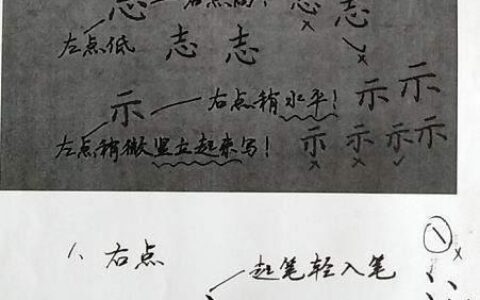 志 右点高! 志 志
左点低 志 志
示 右点稍水平! 示 示
左点稍微竖立起来写! 示 示 示 示
1、右点 ①
起笔轻入笔